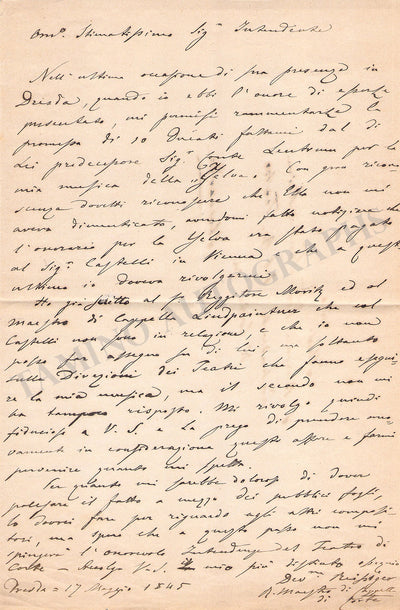 Stimatissimo Sigr Intendente
Nell'ultima occasione di sua presenza in
Dresda, quando io ebbi l'onore di esserle
presentato, mi permisi rammentarle la
promessa di 10 Ducati fattami dal di
Lei predecessore Sigr Conte Leutrum per la
mia musica della "Yelva". Con gran ricono-
scenza dovetti riconoscere che Ella non mi
aveva dimenticato, avendomi fatto notizia che
l'onorario per la Yelva era stato pagato
al Sigr Castelli in Vienna, che a quest'
ultimo io doveva rivolgermi.
Ho già scritto al Sr Reggitore Moritz ed al
maestro di Cappella Lindpaintner che col
Castelli non sono in relazione, e che io non
posso far assegno su di lui ma soltanto
sulle Direzioni dei Teatri che fanno esegui-
re la mia musica, ma il secondo non mi
ha tampoco risposto. Mi rivolgo quindi
fiducioso a V. S. e La prego di prendere nuo-
vamente in considerazione questo affare e farmi
pervenire quanto mi spetta.
Per quanto mi sarebbe doloroso di dover
palesare il fatto a mezzo dei pubblici fogli,
lo dovrei fare per riguardo agli altri composi-
tori, ma spero che a questo passo non mi
spingerà l'onorevole Intendenza del Teatro di
Corte - Accolga V. S. il mio più distinto ossequio
Devmo Reissiger
Dresda - 17 Maggio 1845 R. Maestro di Cappella
di Corte
TAMINO AUTOGRAPHS